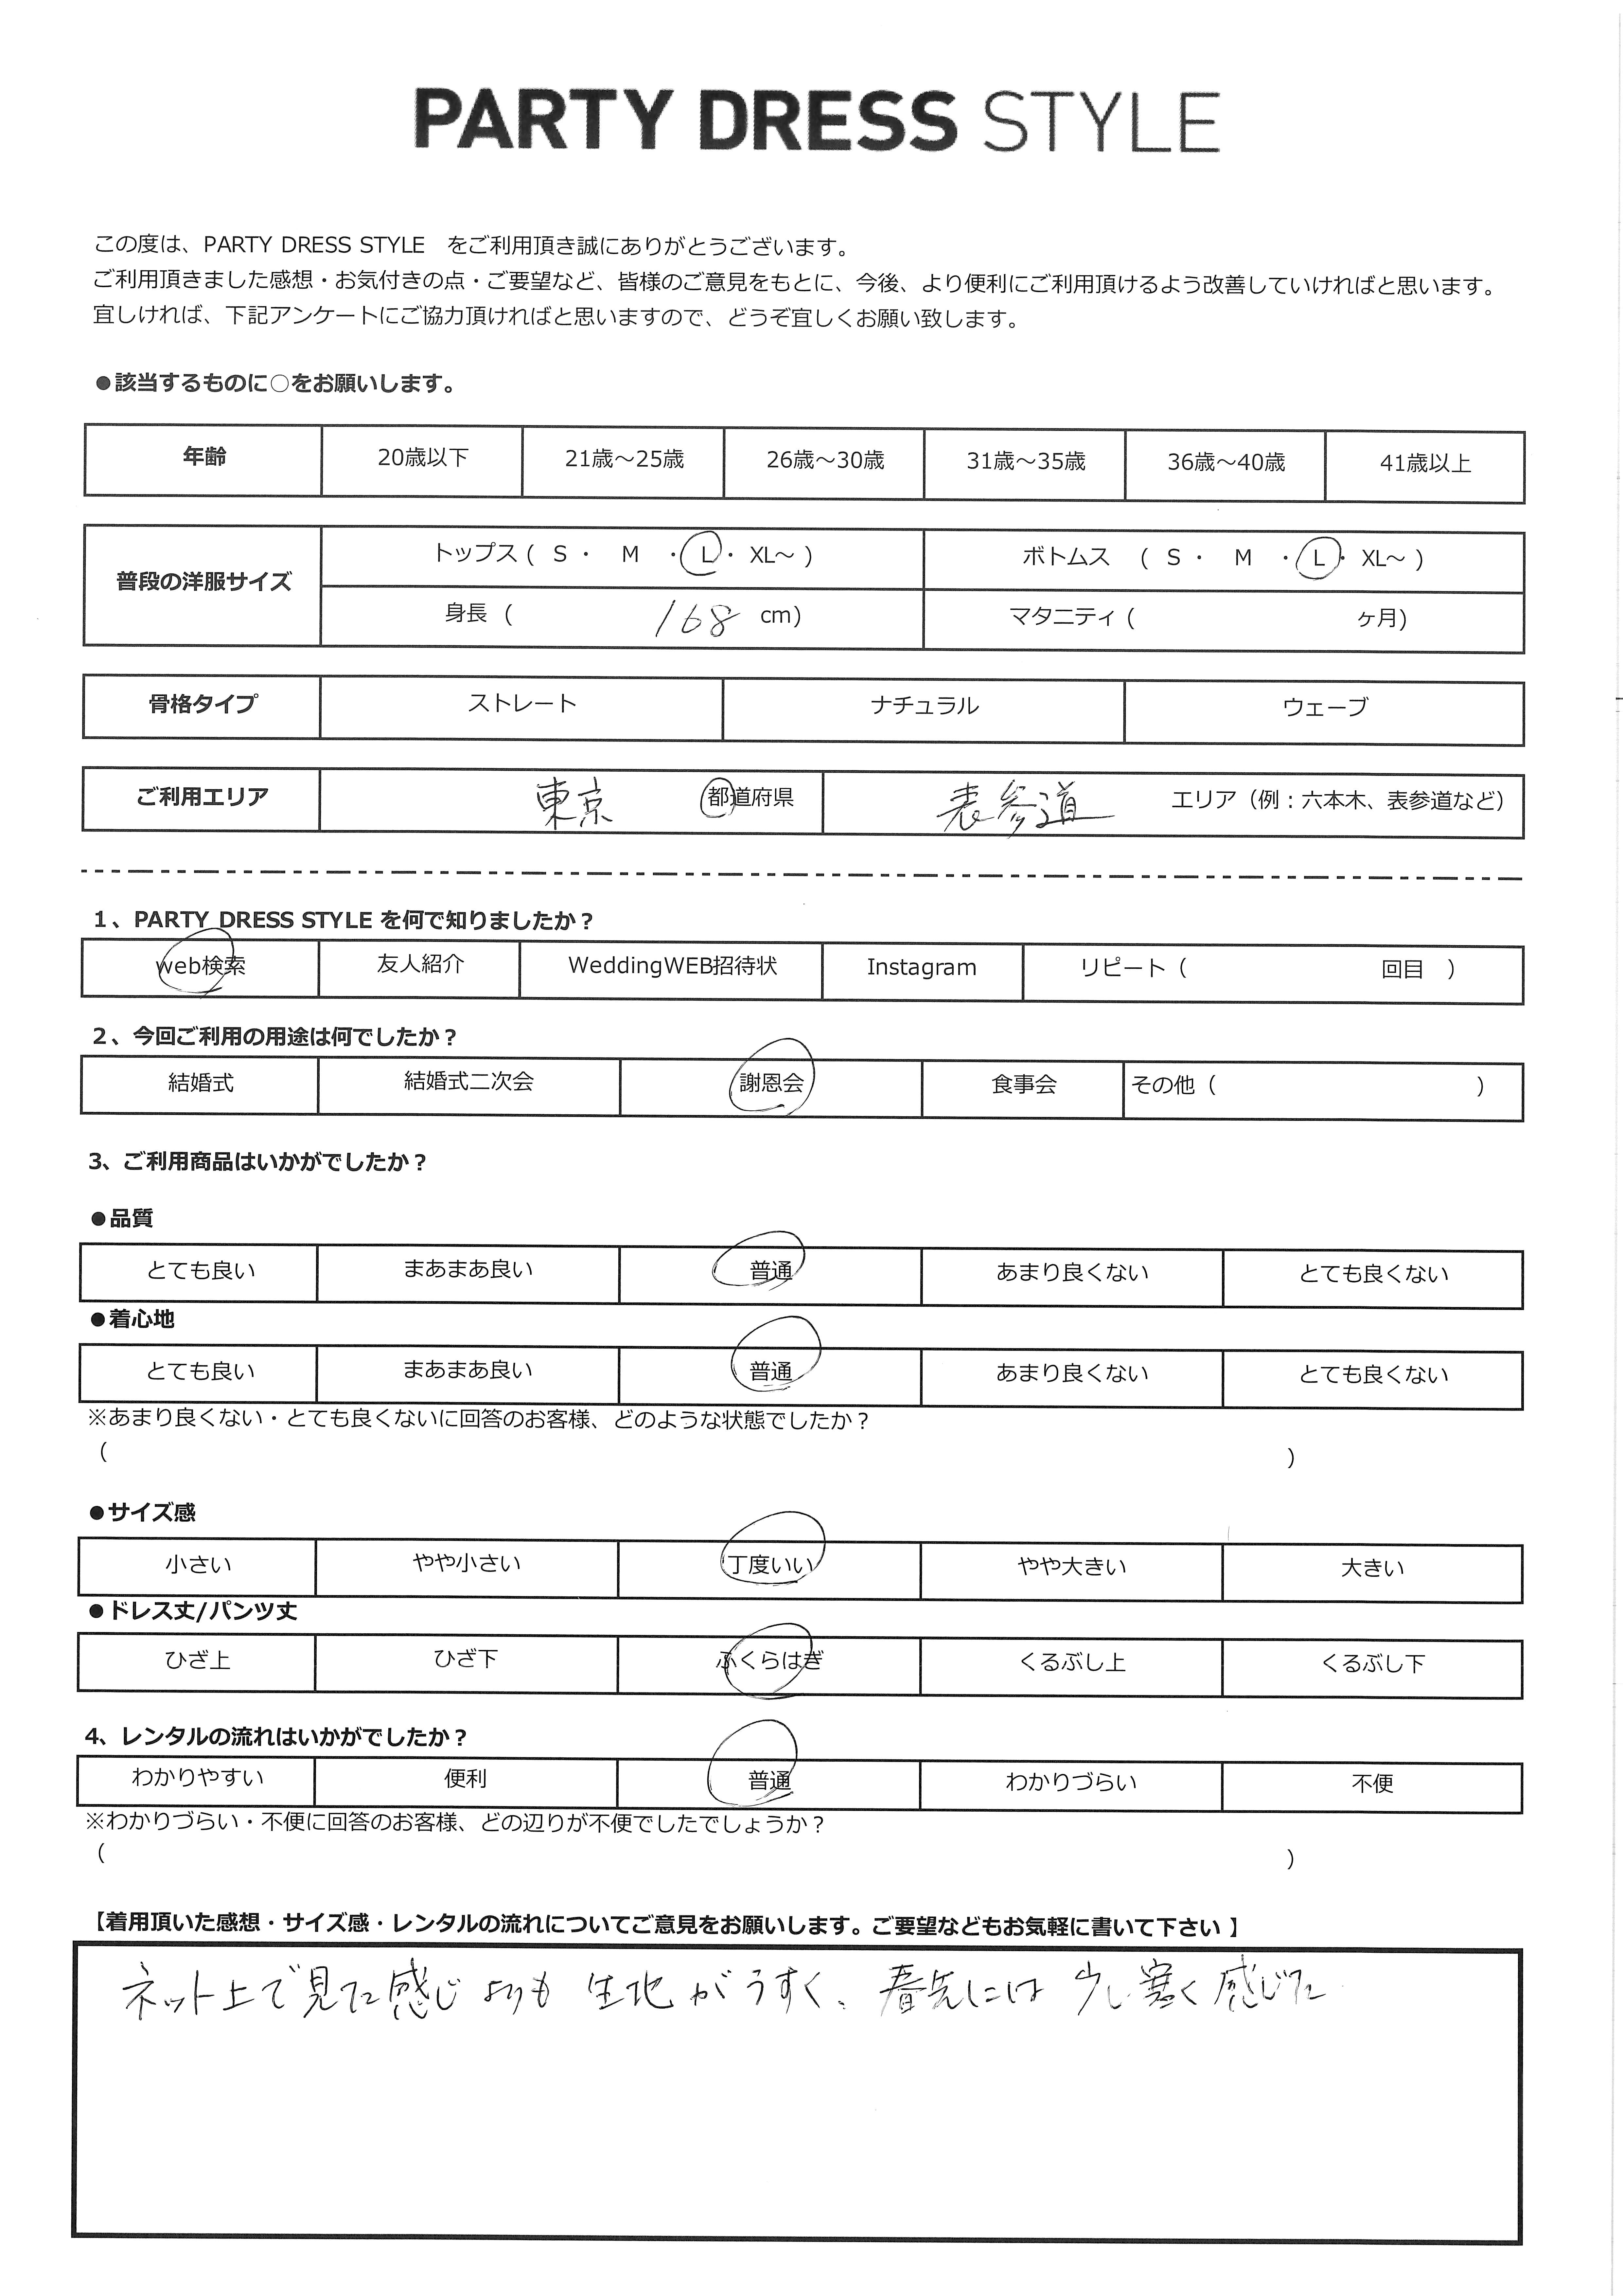 PARTY DRESS STYLE
この度は、PARTY DRESS STYLE　をご利用頂き誠にありがとうございます。
ご利用頂きました感想・お気付きの点・ご要望など、皆様のご意見をもとに、今後、より便利にご利用頂けるよう改善していければと思います。
宜しければ、下記アンケートにご協力頂ければと思いますので、どうぞ宜しくお願い致します。
●該当するものに○をお願いします。
年齢 20歳以下 21歳～25歳 26歳～30歳 31歳～35歳 36歳～40歳 41歳以上
普段の洋服サイズ トップス ( S ・ M ・ L ・ XL～ ) ボトムス ( S ・ M ・ L ・ XL～ )
身長 ( 168 cm) マタニティ ( ヶ月)
骨格タイプ ストレート ナチュラル ウェーブ
ご利用エリア 東京 都道府県 表参道 エリア（例：六本木、表参道など）
1、PARTY DRESS STYLE を何で知りましたか？
web検索 友人紹介 WeddingWEB招待状 Instagram リピート（ 回目 ）
2、今回ご利用の用途は何でしたか？
結婚式 結婚式二次会 謝恩会 食事会 その他（ ）
3、ご利用商品はいかがでしたか？
●品質
とても良い まあまあ良い 普通 あまり良くない とても良くない
●着心地
とても良い まあまあ良い 普通 あまり良くない とても良くない
※あまり良くない・とても良くないに回答のお客様、どのような状態でしたか？
（ ）
●サイズ感
小さい やや小さい 丁度いい やや大きい 大きい
●ドレス丈/パンツ丈
ひざ上 ひざ下 ふくらはぎ くるぶし上 くるぶし下
4、レンタルの流れはいかがでしたか？
わかりやすい 便利 普通 わかりづらい 不便
※わかりづらい・不便に回答のお客様、どの辺りが不便でしたでしょうか？
（ ）
【着用頂いた感想・サイズ感・レンタルの流れについてご意見をお願いします。ご要望などもお気軽に書いて下さい 】
ネット上で見た感じよりも 生地がうすく、春先には 少し寒く感じた